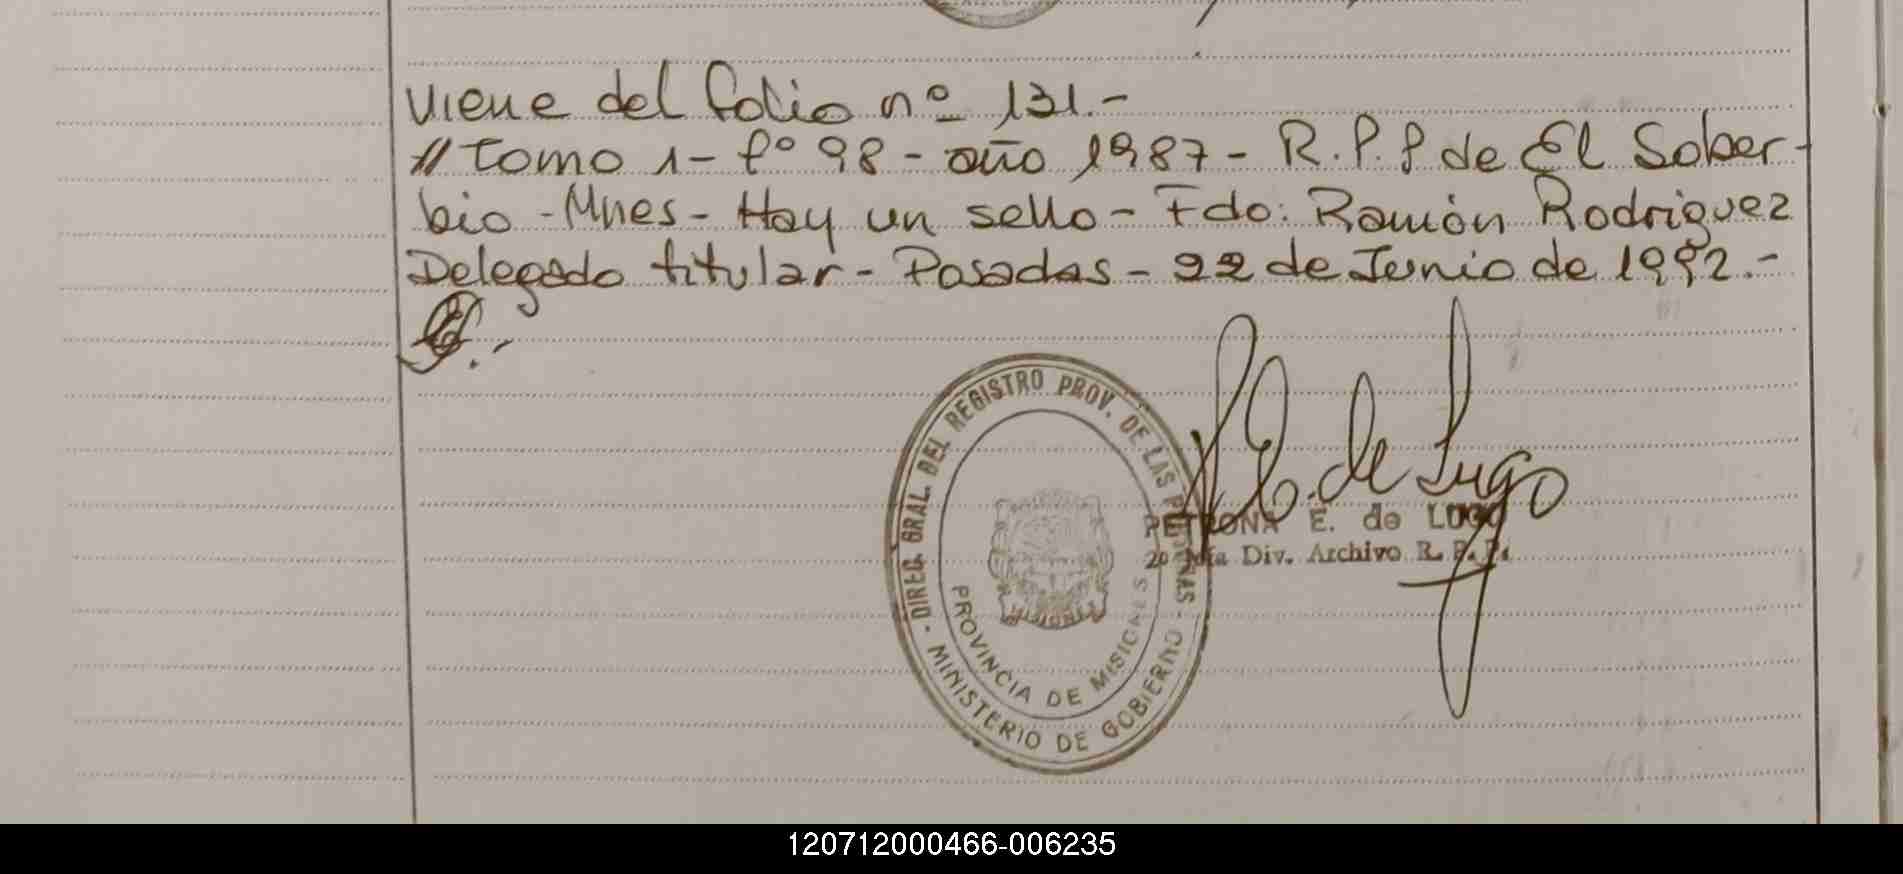 Viene del folio nº 131.-
// Tomo 1- fº 98 - año 1987 - R.P.P de El Sober-
bio - Mnes - Hay un sello - Fdo: Ramón Rodriguez
Delegado titular - Posadas - 22 de Junio de 1992.-
P. E. de Lugo
PETRONA E. de LUGO
Div. Archivo R. P. P.
· DIREC. GRAL. DEL REGISTRO PROV. DE LAS PERSONAS ·
MINISTERIO DE GOBIERNO
PROVINCIA DE MISIONES
MISIONES
120712000466-006235